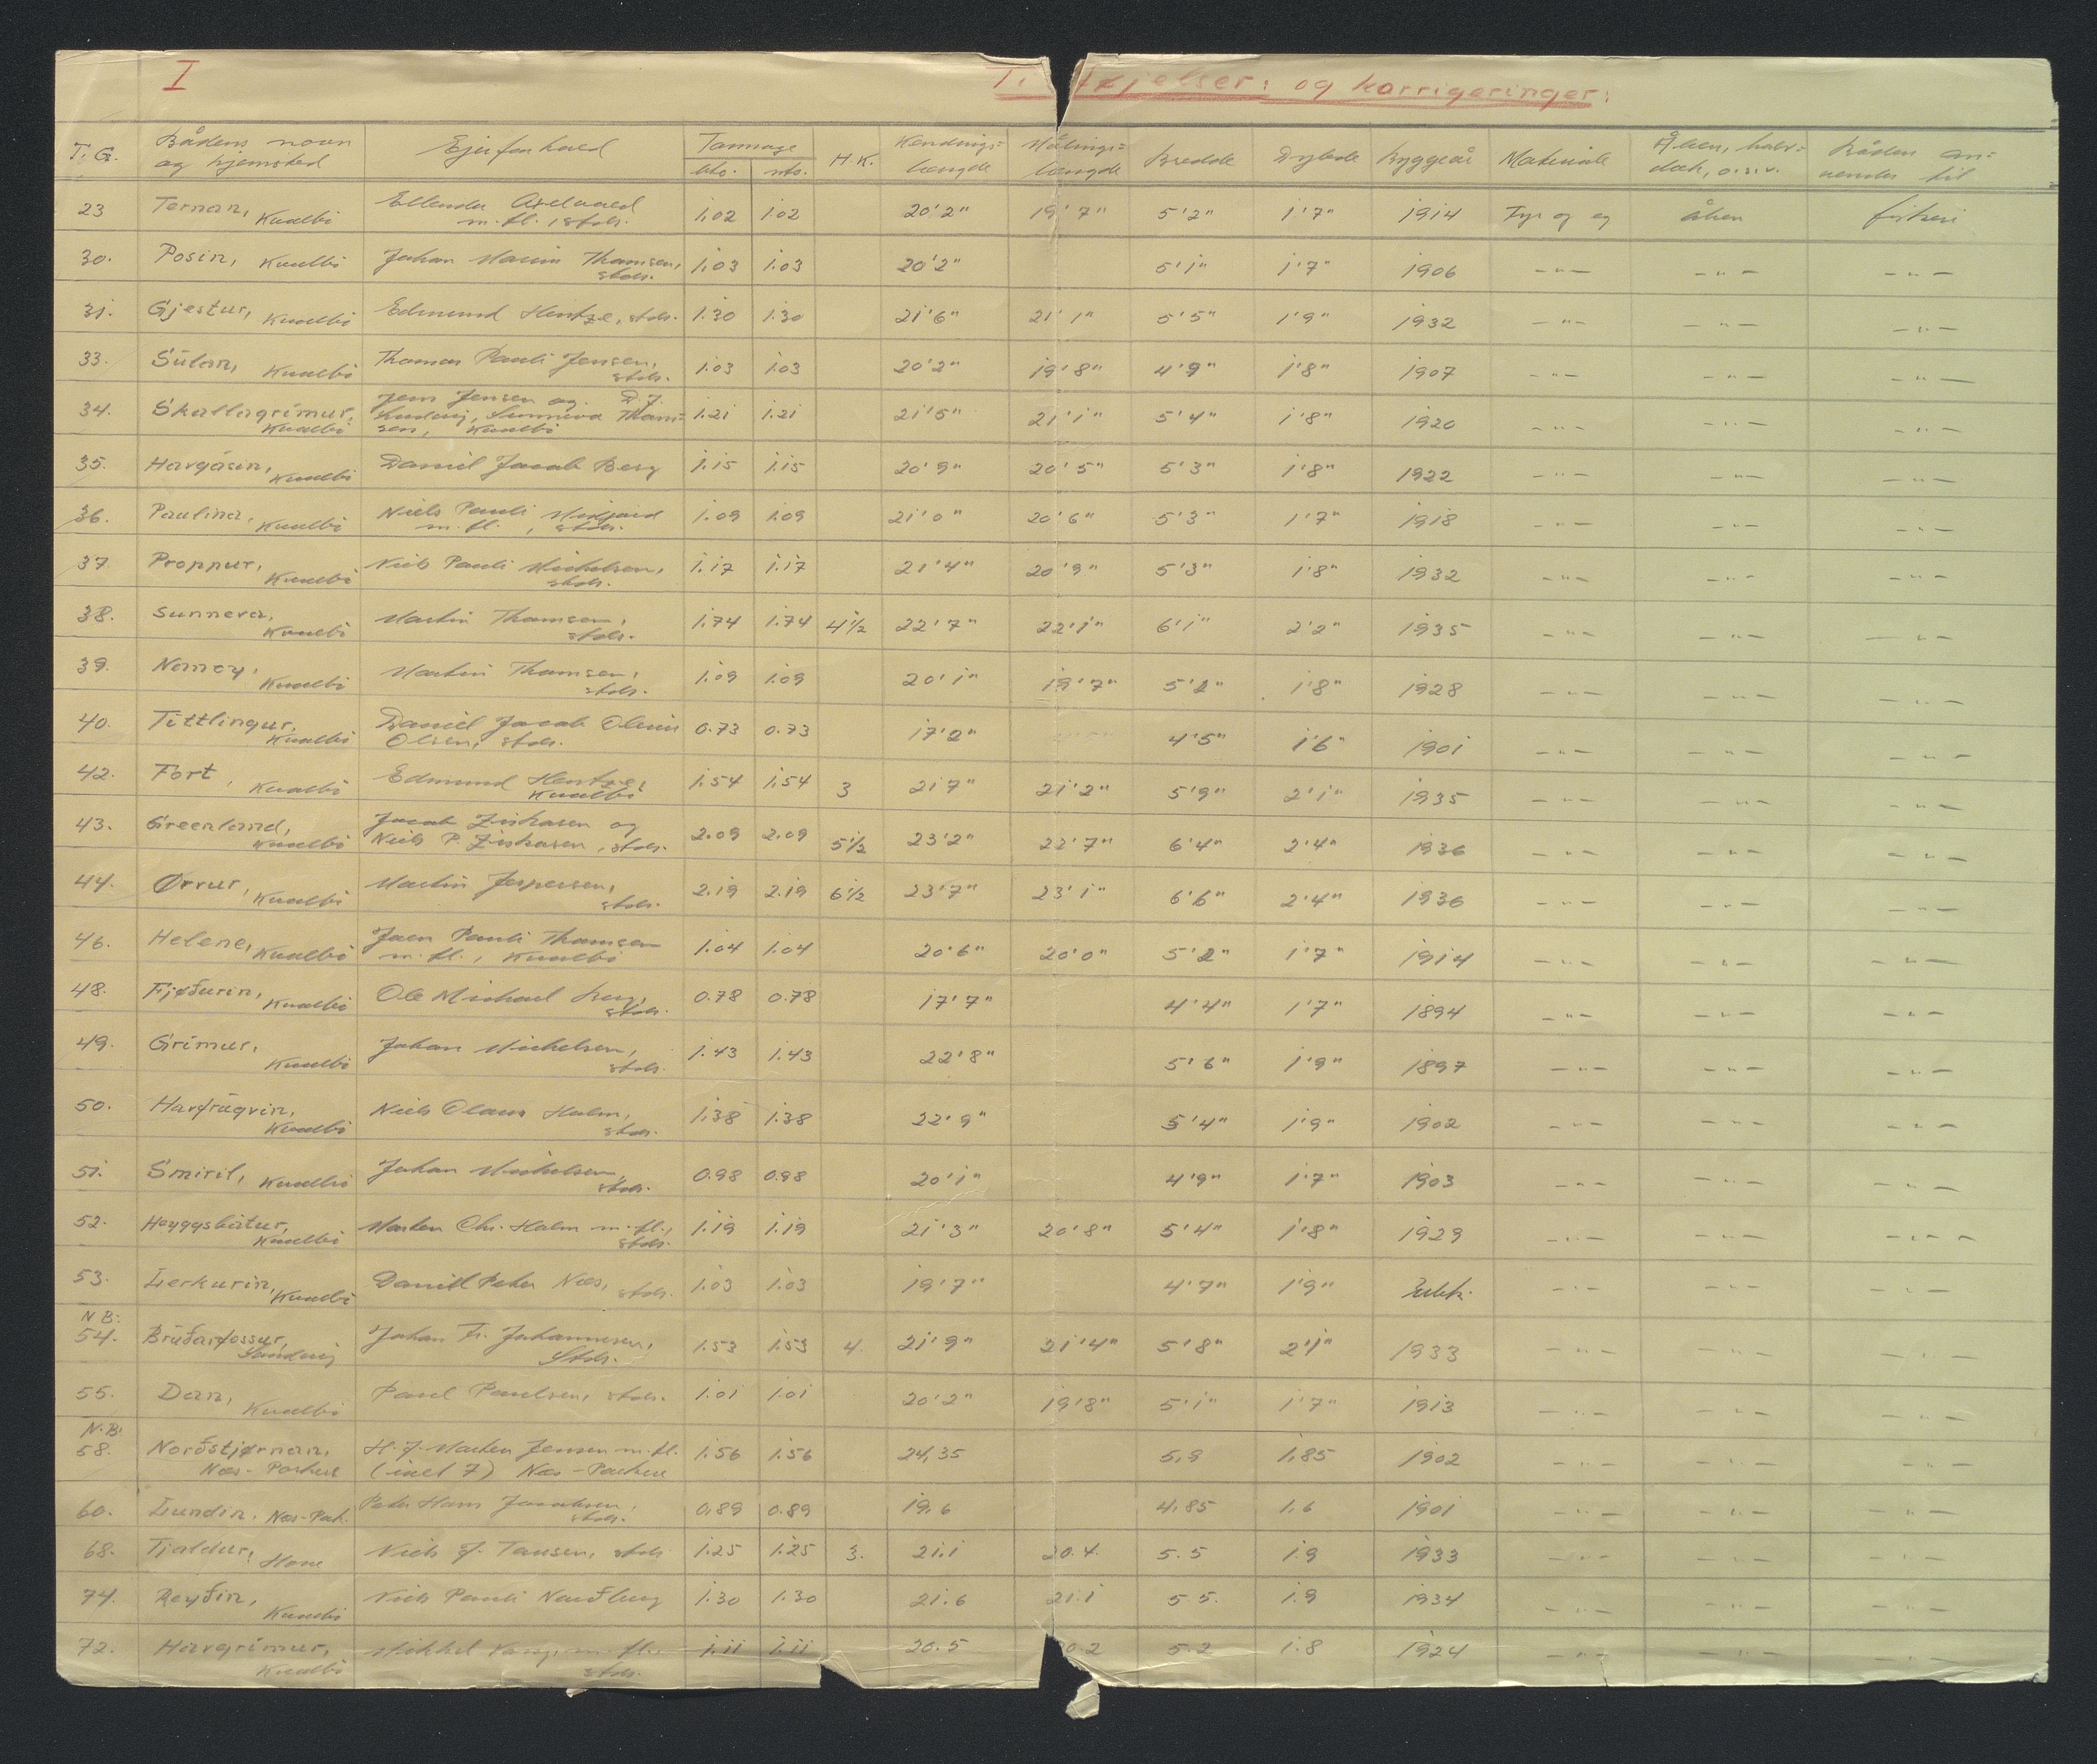 I
og korrigeringer:
T. G. Bådens navn og hjemsted Ejerforhold Tonnage bto. nto. H K. Kendings= længde Målings= længde Bredde Dybde Byggeår Materiale Åben, halv= dæk, o.s.v. Båden an= vendes til
23 Ternan, Kvalbø m. fl. stds. 1.02 1.02 20'2" 19'7" 5'2" 1'7" 1914 Fyr og eg åben fiskeri
30. Posin, Kvalbø Johan Thomsen, stds. 1.03 1.03 20'2" 5'1" 1'7" 1906 - " - - " - - " -
31. Gjestur, Kvalbø Edmund Hentze, stds. 1.30 1.30 21'6" 21'1" 5'5" 1'9" 1932 - " - - " - - " -
33. Súlan, Kvalbø Thomas Pauli Jensen, stds. 1.03 1.03 20'2" 19'8" 4'9" 1'8" 1907 - " - - " - - " -
34. Skallagrímur, Kvalbø Jens Jensen og D. J. Sunneva Thom= sen, Kvalbø 1.21 1.21 21'5" 21'1" 5'4" 1'8" 1920 - " - - " - - " -
35. Havgásin, Kvalbø Daniel Jacob Berg 1.15 1.15 20'9" 20'5" 5'3" 1'8" 1922 - " - - " - - " -
36. Paulina, Kvalbø Niels Pauli m. fl., stds. 1.09 1.09 21'0" 20'6" 5'3" 1'7" 1918 - " - - " - - " -
37. Proppur, Kvalbø Niels Pauli Michelsen, stds. 1.17 1.17 21'4" 20'9" 5'3" 1'8" 1932 - " - - " - - " -
38. Sunneva, Kvalbø Martin Thomsen, stds. 1.74 1.74 4½ 22'7" 22'1" 6'1" 2'2" 1935 - " - - " - - " -
39. Kvalbø Martin Thomsen, stds. 1.09 1.09 20'1" 19'7" 5'2" 1'8" 1928 - " - - " - - " -
40. Títtlingur, Kvalbø Daniel Jacob Olsen, stds. 0.73 0.73 17'2" 4'5" 1'6" 1901 - " - - " - - " -
42. Fort, Kvalbø Edmund Hentze, Kvalbø 1.54 1.54 3 21'7" 21'2" 5'9" 2'1" 1935 - " - - " - - " -
43. Greenland, Kvalbø Jacob Ziskasen og Niels P. Ziskasen, stds. 2.09 2.09 5½ 23'2" 22'7" 6'4" 2'4" 1936 - " - - " - - " -
44. Ørvur, Kvalbø Martin Jespersen, stds. 2.19 2.19 6½ 23'7" 23'1" 6'6" 2'4" 1936 - " - - " - - " -
46. Helene, Kvalbø Joen Pauli Thomsen m. fl., Kvalbø 1.04 1.04 20'6" 20'0" 5'2" 1'7" 1914 - " - - " - - " -
48. Fjøðurin, Kvalbø Ole Michael Berg, stds. 0.78 0.78 17'7" 4'4" 1'7" 1894 - " - - " - - " -
49. Grímur, Kvalbø Johan Michelsen, stds. 1.43 1.43 22'8" 5'6" 1'9" 1897 - " - - " - - " -
50. Havfrúgvin, Kvalbø Niels Olaus Holm, stds. 1.38 1.38 22'9" 5'4" 1'9" 1902 - " - - " - - " -
51. Smiril, Kvalbø Johan Michelsen, stds. 0.98 0.98 20'1" 4'9" 1'7" 1903 - " - - " - - " -
52. Heyggsbátur, Kvalbø Morten Chr. Holm m. fl., stds. 1.19 1.19 21'3" 20'8" 5'4" 1'8" 1929 - " - - " - - " -
53. Lerkurin, Kvalbø Daniel Peter Næs, stds. 1.03 1.03 19'7" 4'7" 1'9" Ubek. - " - - " - - " -
NB:
54. Brúðarfossur, Sandvig Johan Fr. Johannesen, Stds. 1.53 1.53 4. 21'9" 21'4" 5'8" 2'1" 1933 - " - - " - - " -
55. Dan, Kvalbø Poul Poulsen, stds. 1.01 1.01 20'2" 19'8" 5'1" 1'7" 1913 - " - - " - - " -
N.B.
58. Norðstjørnan, Næs - Porkere H. J. Morten Jensen m. fl. (ialt 7) Næs - Porkere 1.56 1.56 24,35 5,9 1,85 1902 - " - - " - - " -
60. Lundin, Næs-Pork. Peter Hans Jacobsen, stds. 0,89 0.89 19,6 4,85 1,6 1901 - " - - " - - " -
68. Tjaldur, Hove Niels J. Tausen, stds 1.25 1.25 3. 21.1 20.4. 5.5 1.9 1933 - " - - " - - " -
74. Reyðin, Kvalbø Niels Pauli Norðberg 1.30 1.30 21.6 21.1 5 5. 1.9 1934 - " - - " - - " -
72. Havgrímur, Kvalbø Mikkel m. fl. stds. 1.11 1.11 20.5 5.2 1.8 1924 - " - - " - - " -